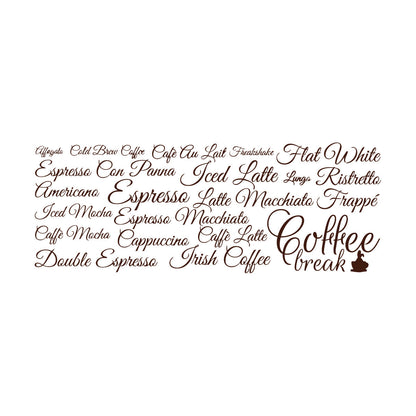 Affogato Cold Brew Coffee Cafè Au Lait Freakshake Flat White
Espresso Con Panna Iced Latte Lungo Ristretto
Americano Espresso Latte Macchiato Frappé
Iced Mocha Espresso Macchiato
Caffè Mocha Cappuccino Caffè Latte
Double Espresso Irish Coffee
Coffee
break